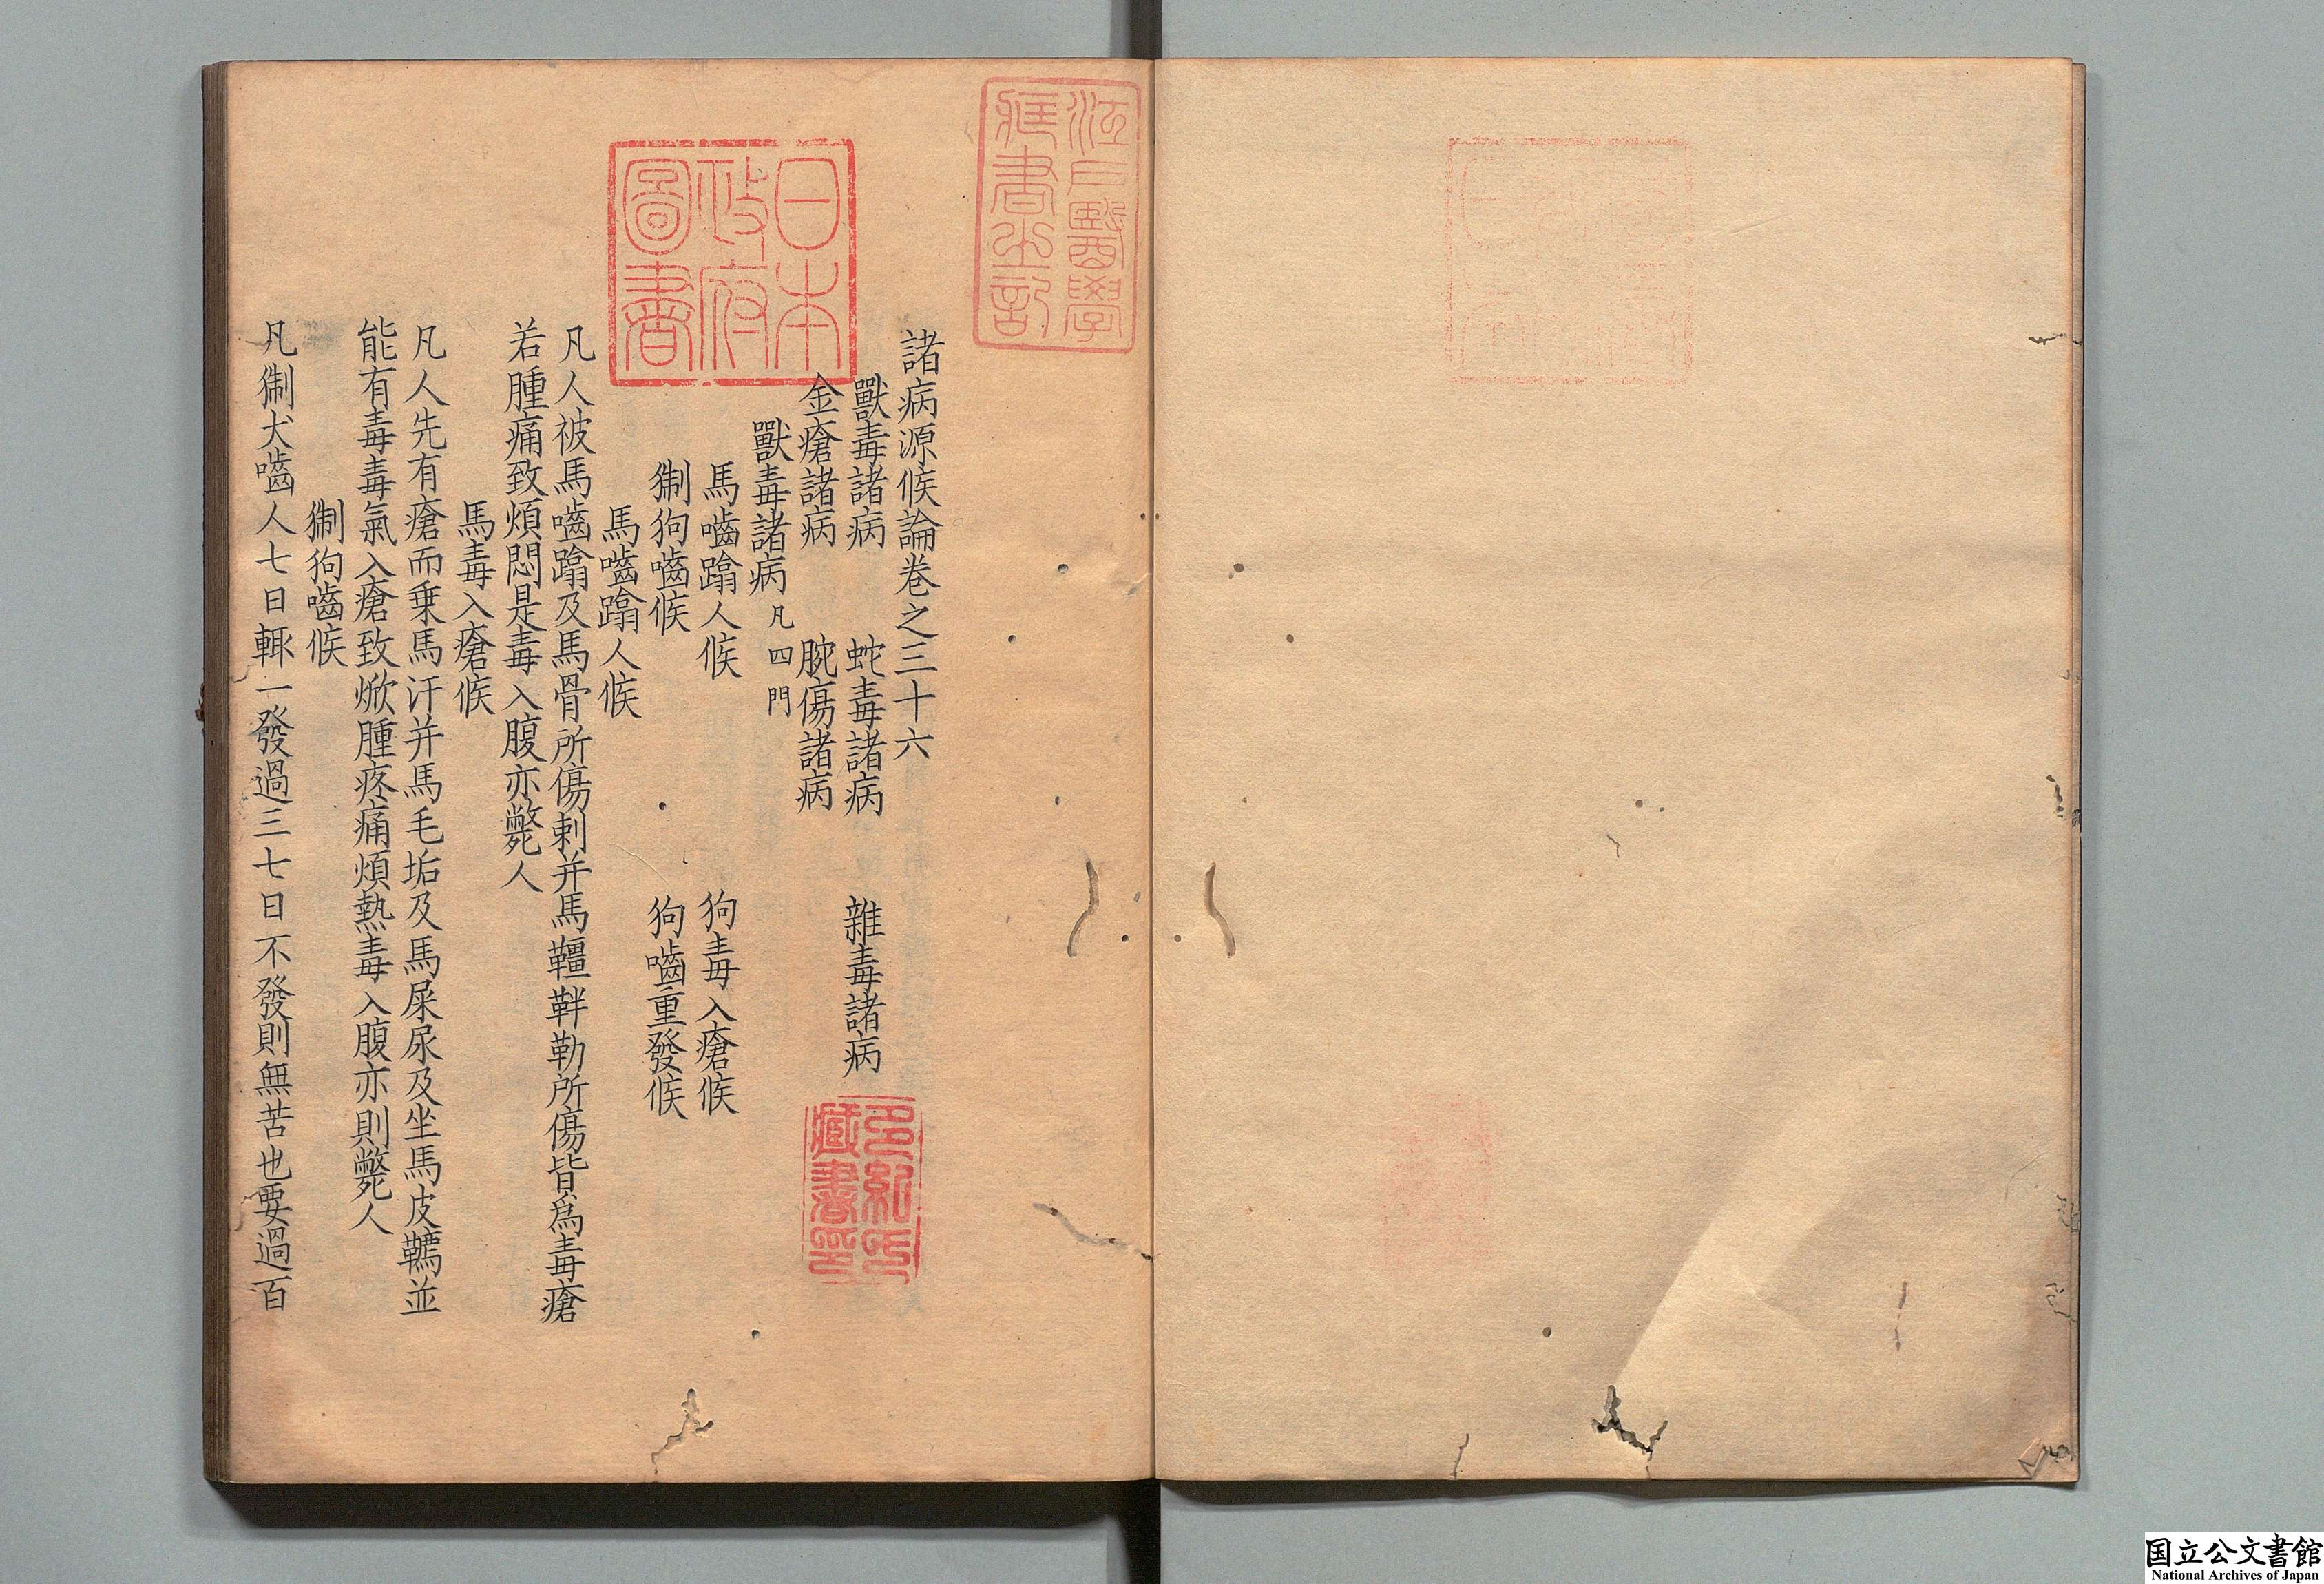 江戸醫學
藏書之記
諸病源候論卷之三十六
獸毒諸病　蛇毒諸病　雜毒諸病
金瘡諸病　腕傷諸病
獸毒諸病 凡四門
馬嚙蹹人候　狗毒入瘡候
猘狗嚙候　狗嚙重發候
馬嚙蹹人候
凡人被馬嚙蹹及馬骨所傷刺并馬韁靽勒所傷皆爲毒瘡
若腫痛致煩悶是毒入腹亦斃人
馬毒入瘡候
凡人先有瘡而乗馬汗并馬毛垢及馬屎尿及坐馬皮韉並
能有毒毒氣入瘡致焮腫疼痛煩熱毒入腹亦則斃人
猘狗嚙候
凡猘犬嚙人七日輙一發過三七日不發則無苦也要過百
日本
政府
圖書
多紀氏
藏書印
国立公文書館
National Archives of Japan